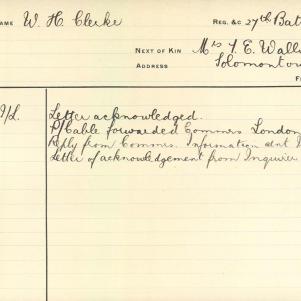 NAME W. H. Clerke REG. &C 27th Bat
NEXT OF KIN Mrs T. E. Wall
ADDRESS Solomontow
F
9/L. Letter acknowledged.
P/Cable forwarded Commrs London
Reply from Commrs. Information sent
Letter of acknowledgement from Inquirer